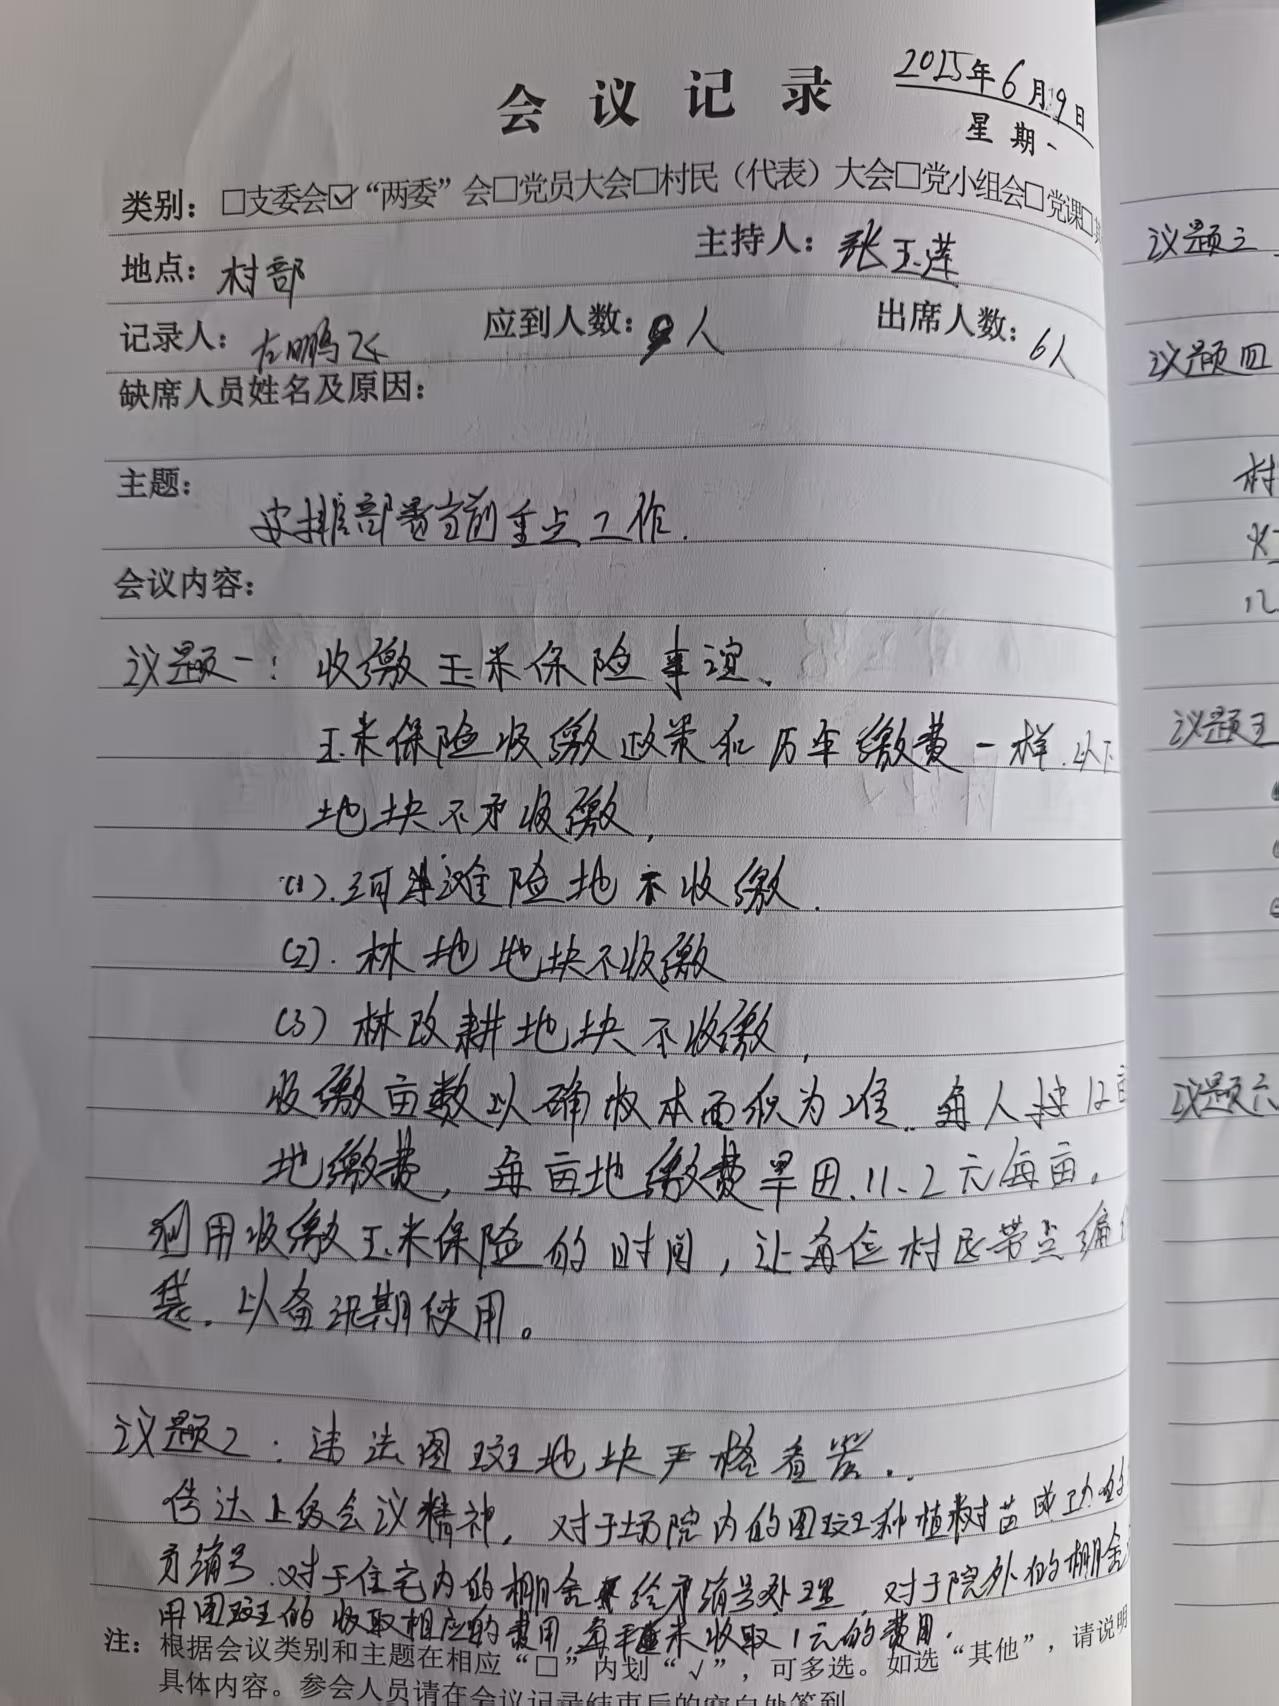 会议记录
2025年6月9日
星期一
类别：□支委会☑“两委”会□党员大会□村民（代表）大会□党小组会□党课□
地点：村部
主持人：张玉莲
记录人：左鹏飞
应到人数：人
出席人数：6人
缺席人员姓名及原因：
主题：
安排部署当前重点工作.
会议内容：
议题一：收缴玉米保险事谊、
玉米保险收缴政策和历年缴费一样.以下
地块不予收缴,
(1).河滩险地不收缴.
(2).林地地块不收缴
(3)林改耕地块不收缴,
收缴亩数以确权本面积为准.每人按12亩
地缴费,每亩地缴费旱田.11.2元每亩。
利用收缴玉米保险的时间,让每位村民带点编
袋.以备汛期使用。
议题2：违法图斑地块严格看管..
传达上级会议精神,对于场院内的图斑种植树苗成功的
予编号.对于住宅内的棚舍给予编号处理,对于院外的棚舍
用图斑的收取相应的费用,每平米收取1元的费用.
注：根据会议类别和主题在相应“□”内划“√”，可多选。如选“其他”，请说明
具体内容。参会人员请在会议记录结束后的空白处签到
议题三
议题四
村
议题五
议题六